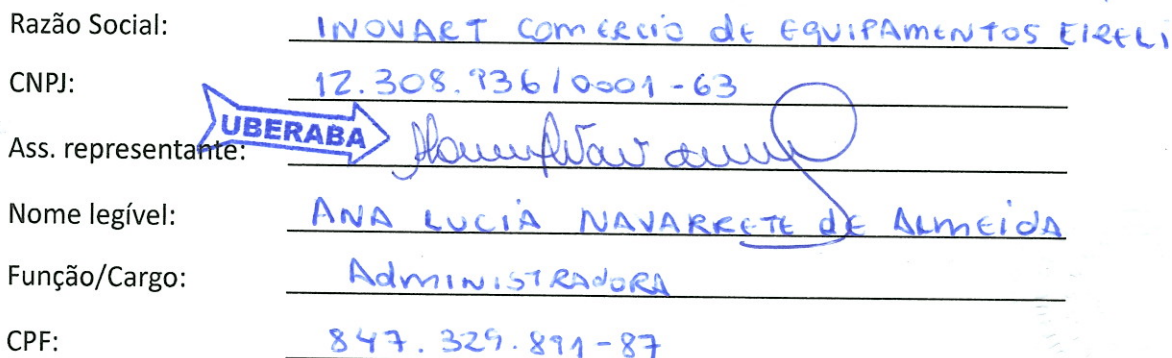 Razão Social: INOVART COMERCIO DE EQUIPAMENTOS EIRELI
CNPJ: 12.308.936/0001-63
UBERABA
Ass. representante:
Nome legível: ANA LUCIA NAVARRETE DE ALMEIDA
Função/Cargo: ADMINISTRADORA
CPF: 847.329.891-87